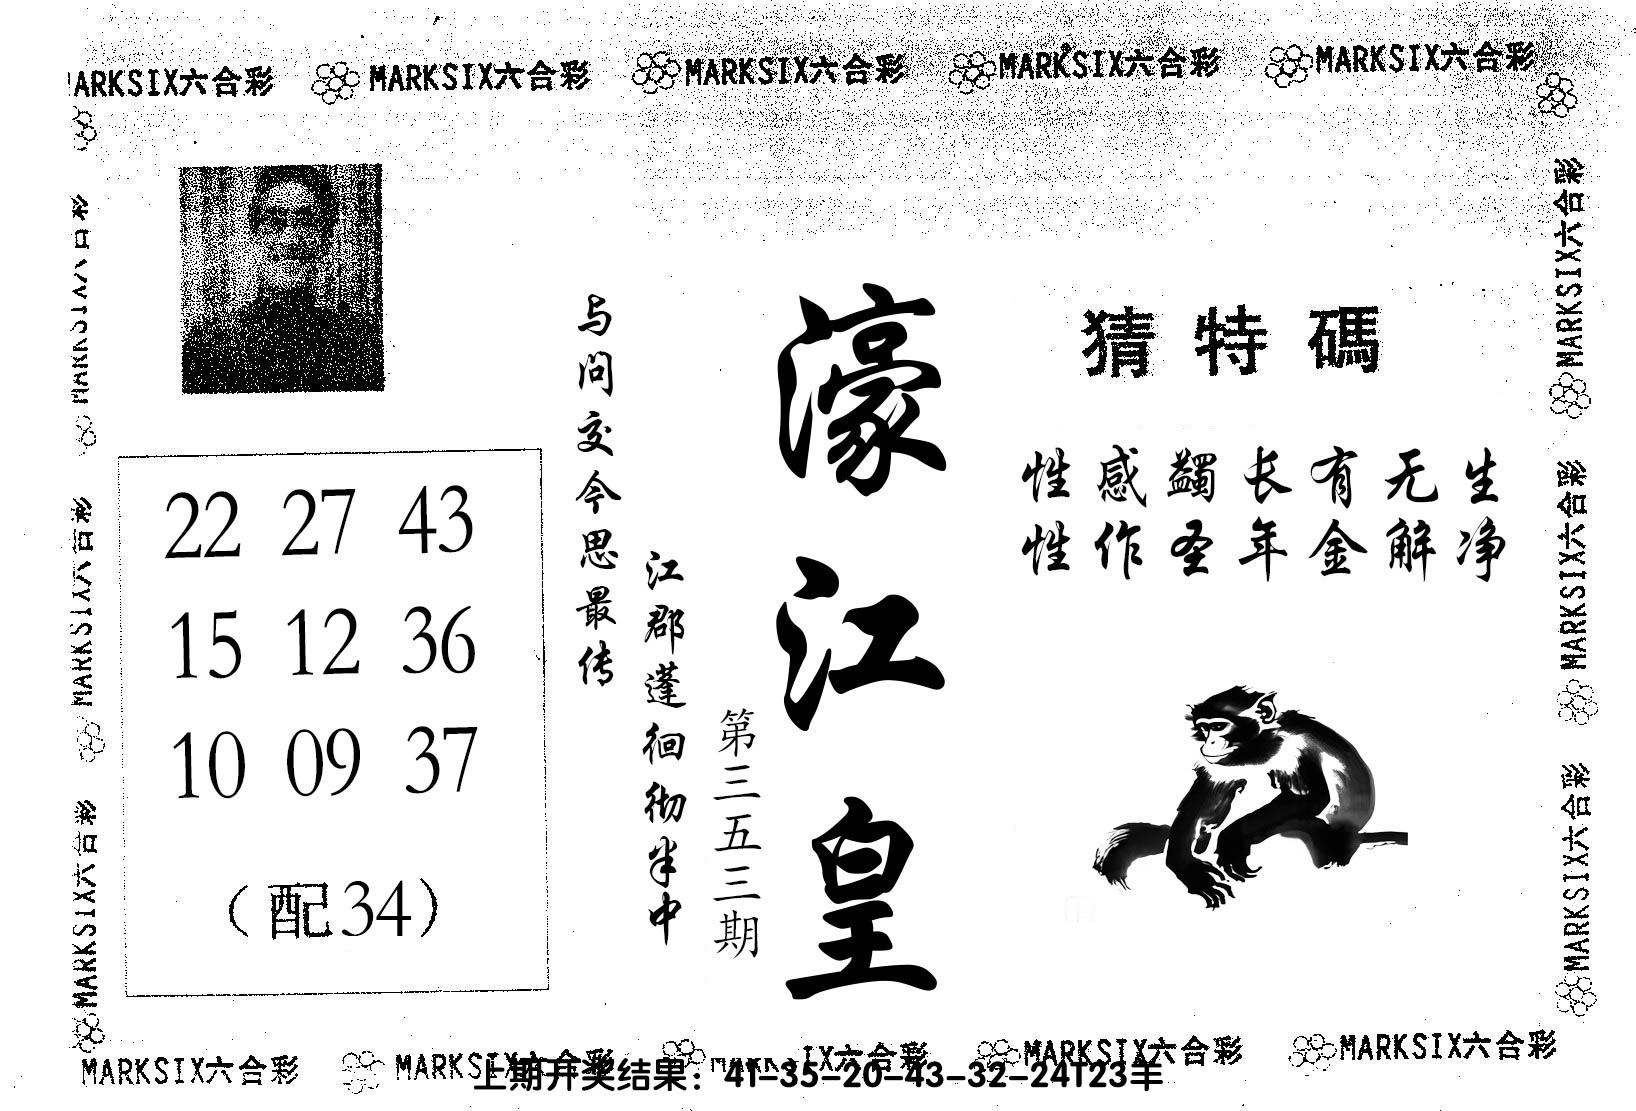 MARKSIX六合彩 MARKSIX六合彩 MARKSIX六合彩 MARKSIX六合彩 MARKSIX六合彩
猜特碼
性感蠲长有无生
性作圣年金解净
濠江皇
第三五三期
江郡蓬徊彻半中
与问交今思最传
22 27 43
15 12 36
10 09 37
（配34）
MARKSIX六合彩
MARKSIX六合彩
MARKSIX六合彩
MARKSIX六合彩
MARKSIX六合彩
MARKSIX六合彩
MARKSIX六合彩 MARKSIX六合彩 MARKSIX六合彩 MARKSIX六合彩 MARKSIX六合彩
上期开奖结果：41-35-20-43-32-24T23羊